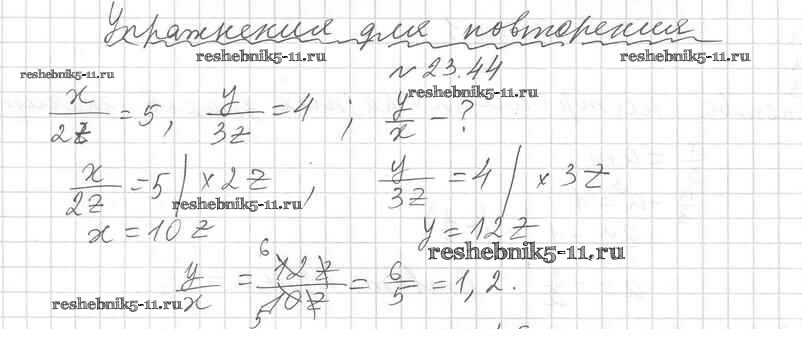 Упражнения для повторения
reshebnik5-11.ru reshebnik5-11.ru
reshebnik5-11.ru № 23.44
reshebnik5-11.ru
x/2z = 5, y/3z = 4 ; y/x - ?
x/2z = 5 | × 2z ; y/3z = 4 | × 3z
reshebnik5-11.ru
x = 10z y = 12z
reshebnik5-11.ru
y/x = 6 12z / 5 10z = 6/5 = 1,2.
reshebnik5-11.ru reshebnik5-11.ru